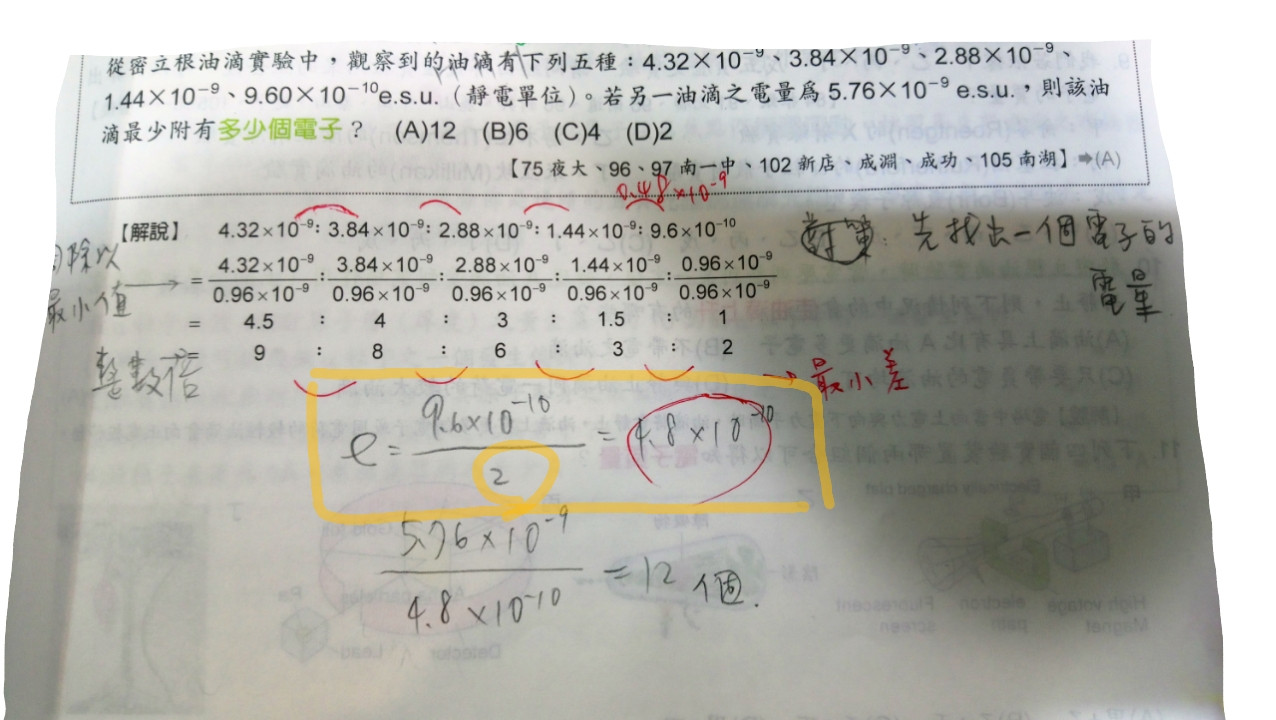 從密立根油滴實驗中，觀察到的油滴有下列五種：4.32×10⁻⁹、3.84×10⁻⁹、2.88×10⁻⁹、
1.44×10⁻⁹、9.60×10⁻¹⁰e.s.u.（靜電單位）。若另一油滴之電量為 5.76×10⁻⁹ e.s.u.，則該油
滴最少附有多少個電子？ (A)12 (B)6 (C)4 (D)2
【75 夜大、96、97 南一中、102 新店、成淵、成功、105 南湖】➡(A)
0.48×10⁻⁹
【解說】 4.32×10⁻⁹: 3.84×10⁻⁹: 2.88×10⁻⁹: 1.44×10⁻⁹: 9.6×10⁻¹⁰
先找出一個電子的
電量
同除以
最小值 → = 4.32×10⁻⁹/0.96×10⁻⁹ : 3.84×10⁻⁹/0.96×10⁻⁹ : 2.88×10⁻⁹/0.96×10⁻⁹ : 1.44×10⁻⁹/0.96×10⁻⁹ : 0.96×10⁻⁹/0.96×10⁻⁹
= 4.5 : 4 : 3 : 1.5 : 1
整數倍 → = 9 : 8 : 6 : 3 : 2
→ 最小差
e = 9.6×10⁻¹⁰/2 = 4.8×10⁻¹⁰
5.76×10⁻⁹/4.8×10⁻¹⁰ = 12 個.